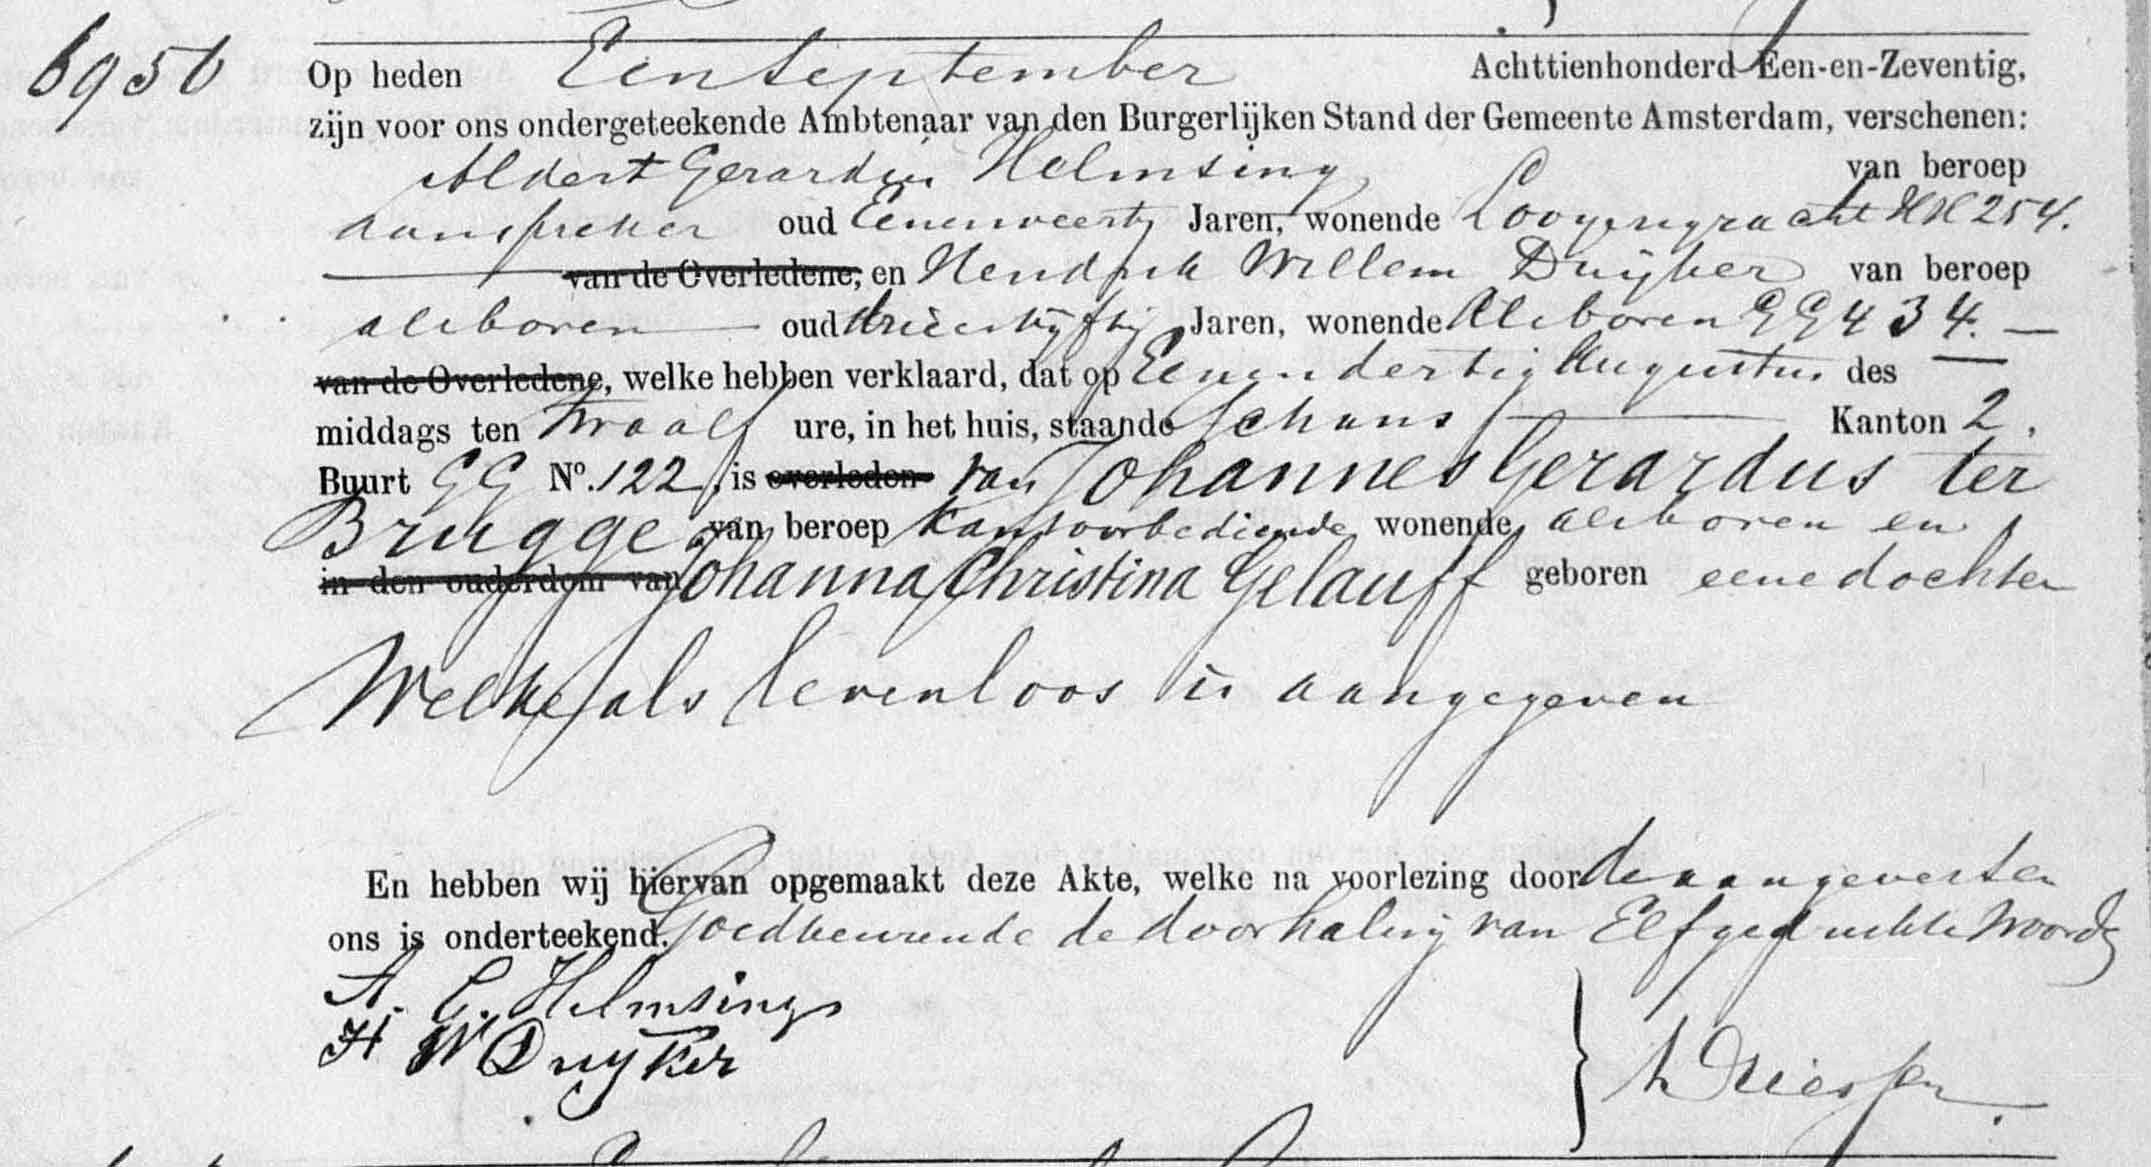 6950
Op heden Een September Achttienhonderd Een-en-Zeventig,
zijn voor ons ondergeteekende Ambtenaar van den Burgerlijken Stand der Gemeente Amsterdam, verschenen:
Aldert Gerardus Helmsing van beroep
aanspreker oud Eenenveertig Jaren, wonende Looyersgracht KK 254.
van de Overledene, en Hendrik Willem Duijker van beroep
alsboven oud drieenvijftig Jaren, wonende Alsboven GG 434. —
van de Overledene, welke hebben verklaard, dat op Eenendertig Augustus des
middags ten twaalf ure, in het huis, staande Schans Kanton 2,
Buurt GG No. 122, is overleden van Johannes Gerardus ter
Brugge van beroep Kantoorbediende wonende alsboven en
in den ouderdom van Johanna Christina Gelauff geboren eene dochter
Welke als levenloos is aangegeven
En hebben wij hiervan opgemaakt deze Akte, welke na voorlezing door de aangevers en
ons is onderteekend. Goedkeurende de doorhaling van Elf gedrukte woorden
A. G. Helmsing
H W Duyker